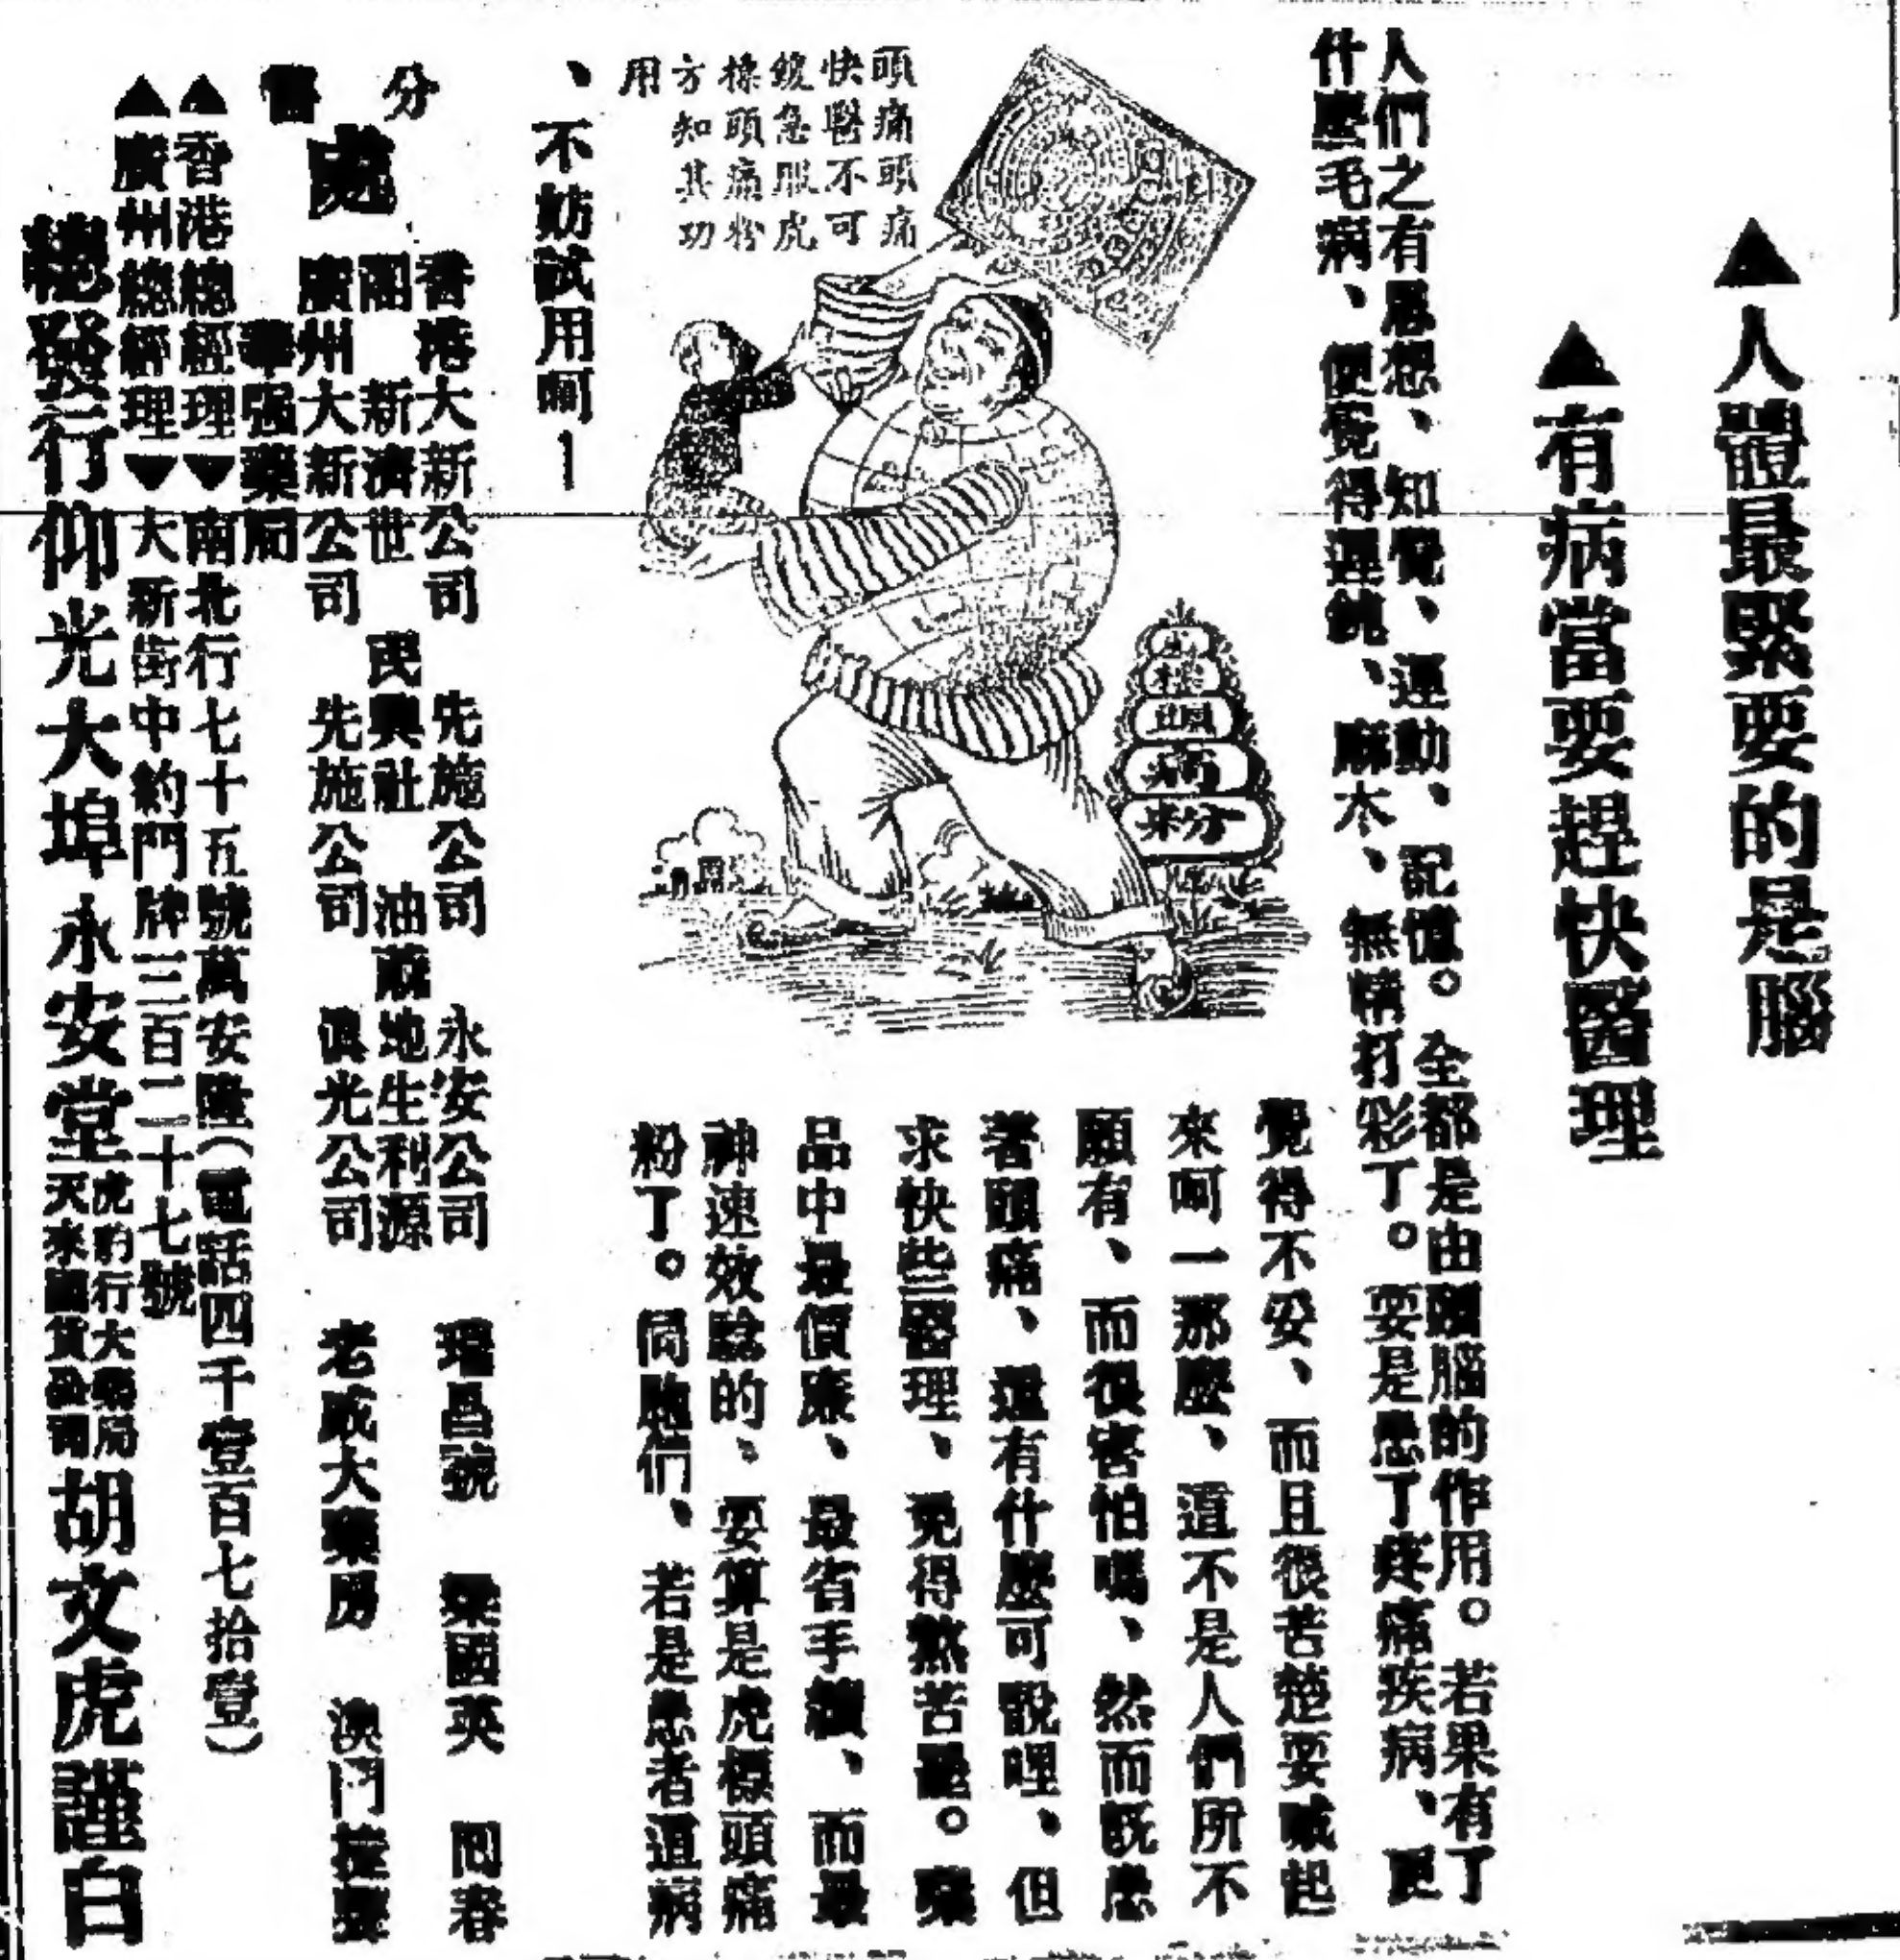 ▲人體最緊要的是腦
▲有病當要趕快醫理
人們之有思想、知覺、運動、記憶。全都是由頭腦的作用。若果有了
什麼毛病、便覺得遲鈍、麻木、無精打彩了。要是患了疼痛疾病、更
覺得不妥、而且很苦楚要喊起
來呵一那麼、這不是人們所不
願有、而很害怕嗎、然而既患
者頭痛、還有什麼可說哩、但
求快些醫理、免得熬苦罷。藥
品中最價廉、最省手續、而最
神速效驗的、要算是虎標頭痛
粉了。同胞們、若是患者這病
頭痛頭痛
快醫不可
緩急服虎
標頭痛粉
方知其功
用
虎標頭痛粉
、不妨試用呵—
分售處
香港大新公司 先施公司 永安公司 瑞昌號 梁國英 同春
閣 新濟世 民興社 油蔴地生利源
廣州大新公司 先施公司 真光公司 老威大藥房 澳門
華强藥局
▲香港總經理▼南北行七十五號萬安隆(電話四千壹百七拾壹)
▲廣州總經理▼大新街中約門牌三百二十七號
總發行仰光大埠永安堂虎豹行大藥局胡文虎謹白